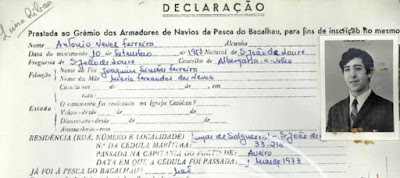 Luisa Ribau
DECLARAÇÃO
Prestada ao Grémio dos Armadores de Navios da Pesca do Bacalhau, para fins de inscrição no mesmo
Nome António Neves Ferreira Alcunha
Data do nascimento 10 de Setembro de 1957 Natural de S. João de Loure
Freguesia de S. João de Loure Concelho de Albergaria-a-Velha
Filiação Nome do Pai Joaquim Simões Ferreira
Nome da Mãe Maria Fernandes das Neves
Casado em de de , em
O casamento foi realizado na Igreja Católica?
Estado Viúvo desde de de
Divorciado desde de de
Amancebado com
RESIDÊNCIA (RUA, NÚMERO E LOCALIDADE) Lugar de Salgueiro - S. João de
N.º DA CÉDULA MARÍTIMA:
PASSADA NA CAPITANIA DO PORTO DE: Aveiro
DATA EM QUE A CÉDULA FOI PASSADA: 1 Março 1973
JÁ FOI À PESCA DO BACALHAU? Não